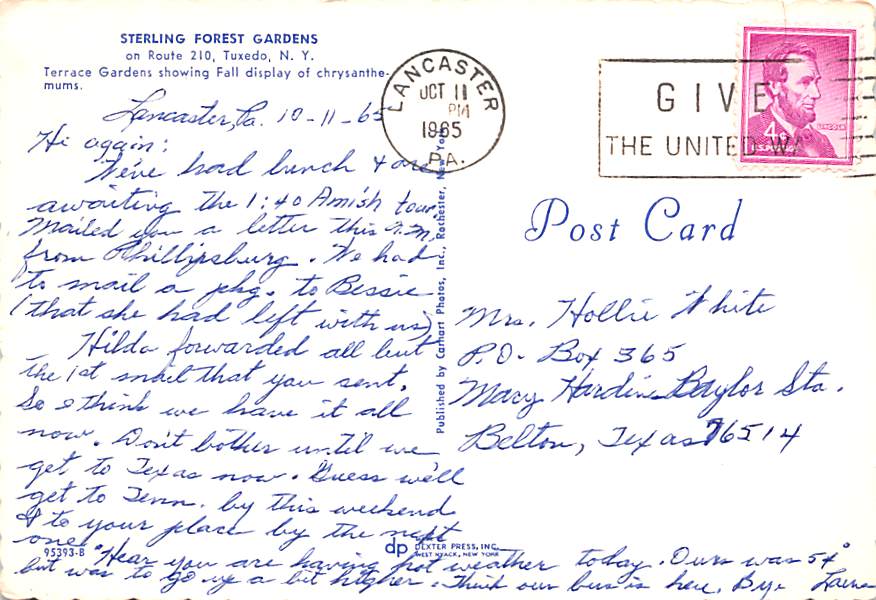 STERLING FOREST GARDENS
on Route 210, Tuxedo, N. Y.
Terrace Gardens showing Fall display of chrysanthe-
mums.
Lancaster, Pa. 10-11-65
Hi again:
We've had lunch & are
awaiting the 1:40 Amish tour.
Mailed you a letter this A.M.
from Phillipsburg. We had
to mail a pkg. to Bessie
(that she had left with us)
Hilda forwarded all but
the 1st mail that you sent.
So I think we have it all
now. Don't bother until we
get to Texas now. Guess we'll
get to Tenn. by this weekend
& to your place by the next
one.
Hear you are having hot weather today. Ours was 54°
but was to go up a bit higher. Think our bus is here. Bye
95393-B
dp DEXTER PRESS, INC.
WEST NYACK, NEW YORK
Published by Carhart Photos, Inc., Rochester, New York
LANCASTER
OCT 11
PM
1965
PA.
GIVE
THE UNITED WA
LINCOLN
4¢
U.S. POSTAGE
Post Card
Mrs. Hollie White
P.O. Box 365
Mary Hardin Baylor Sta.
Belton, Texas 76514